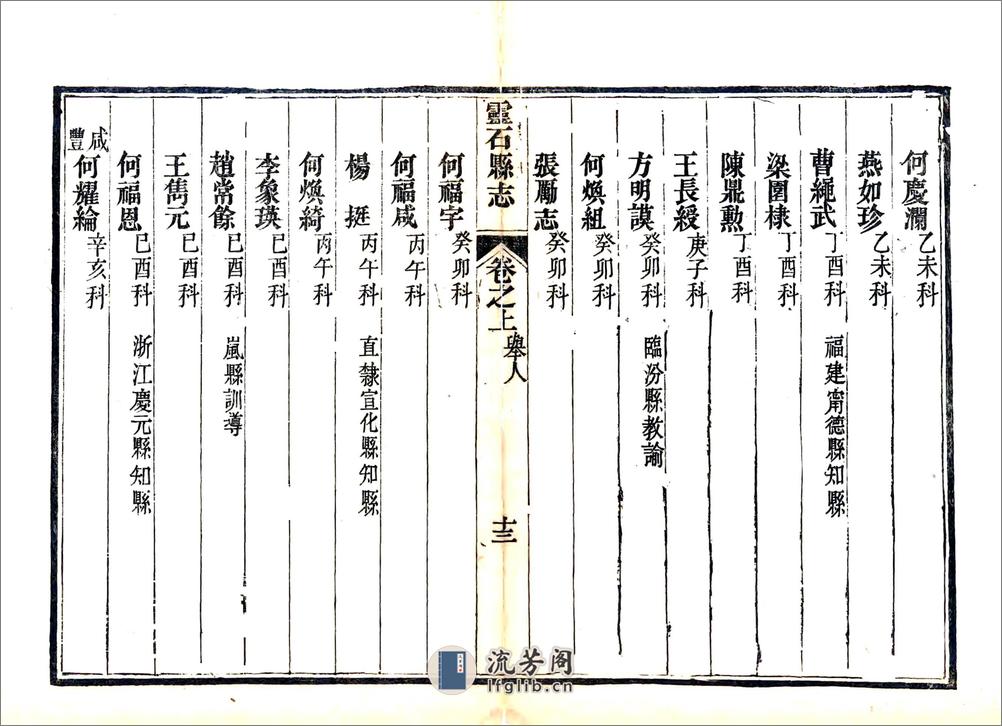 何慶瀾 乙未科
燕如珍 乙未科
曹繩武 丁酉科 福建甯德縣知縣
梁圍棣 丁酉科
陳鼎勲 丁酉科
王長綬 庚子科
方明謨 癸卯科 臨汾縣教諭
何煥組 癸卯科
張勵志 癸卯科
靈石縣志 卷之上 舉人 十三
何福字 癸卯科
何福咸 丙午科
楊挺 丙午科 直隸宣化縣知縣
何煥綺 丙午科
李象瑛 已酉科
趙常餘 已酉科 嵐縣訓導
王雋元 已酉科
何福恩 已酉科 浙江慶元縣知縣
咸豐
何耀綸 辛亥科
流芳阁
lfglib.cn